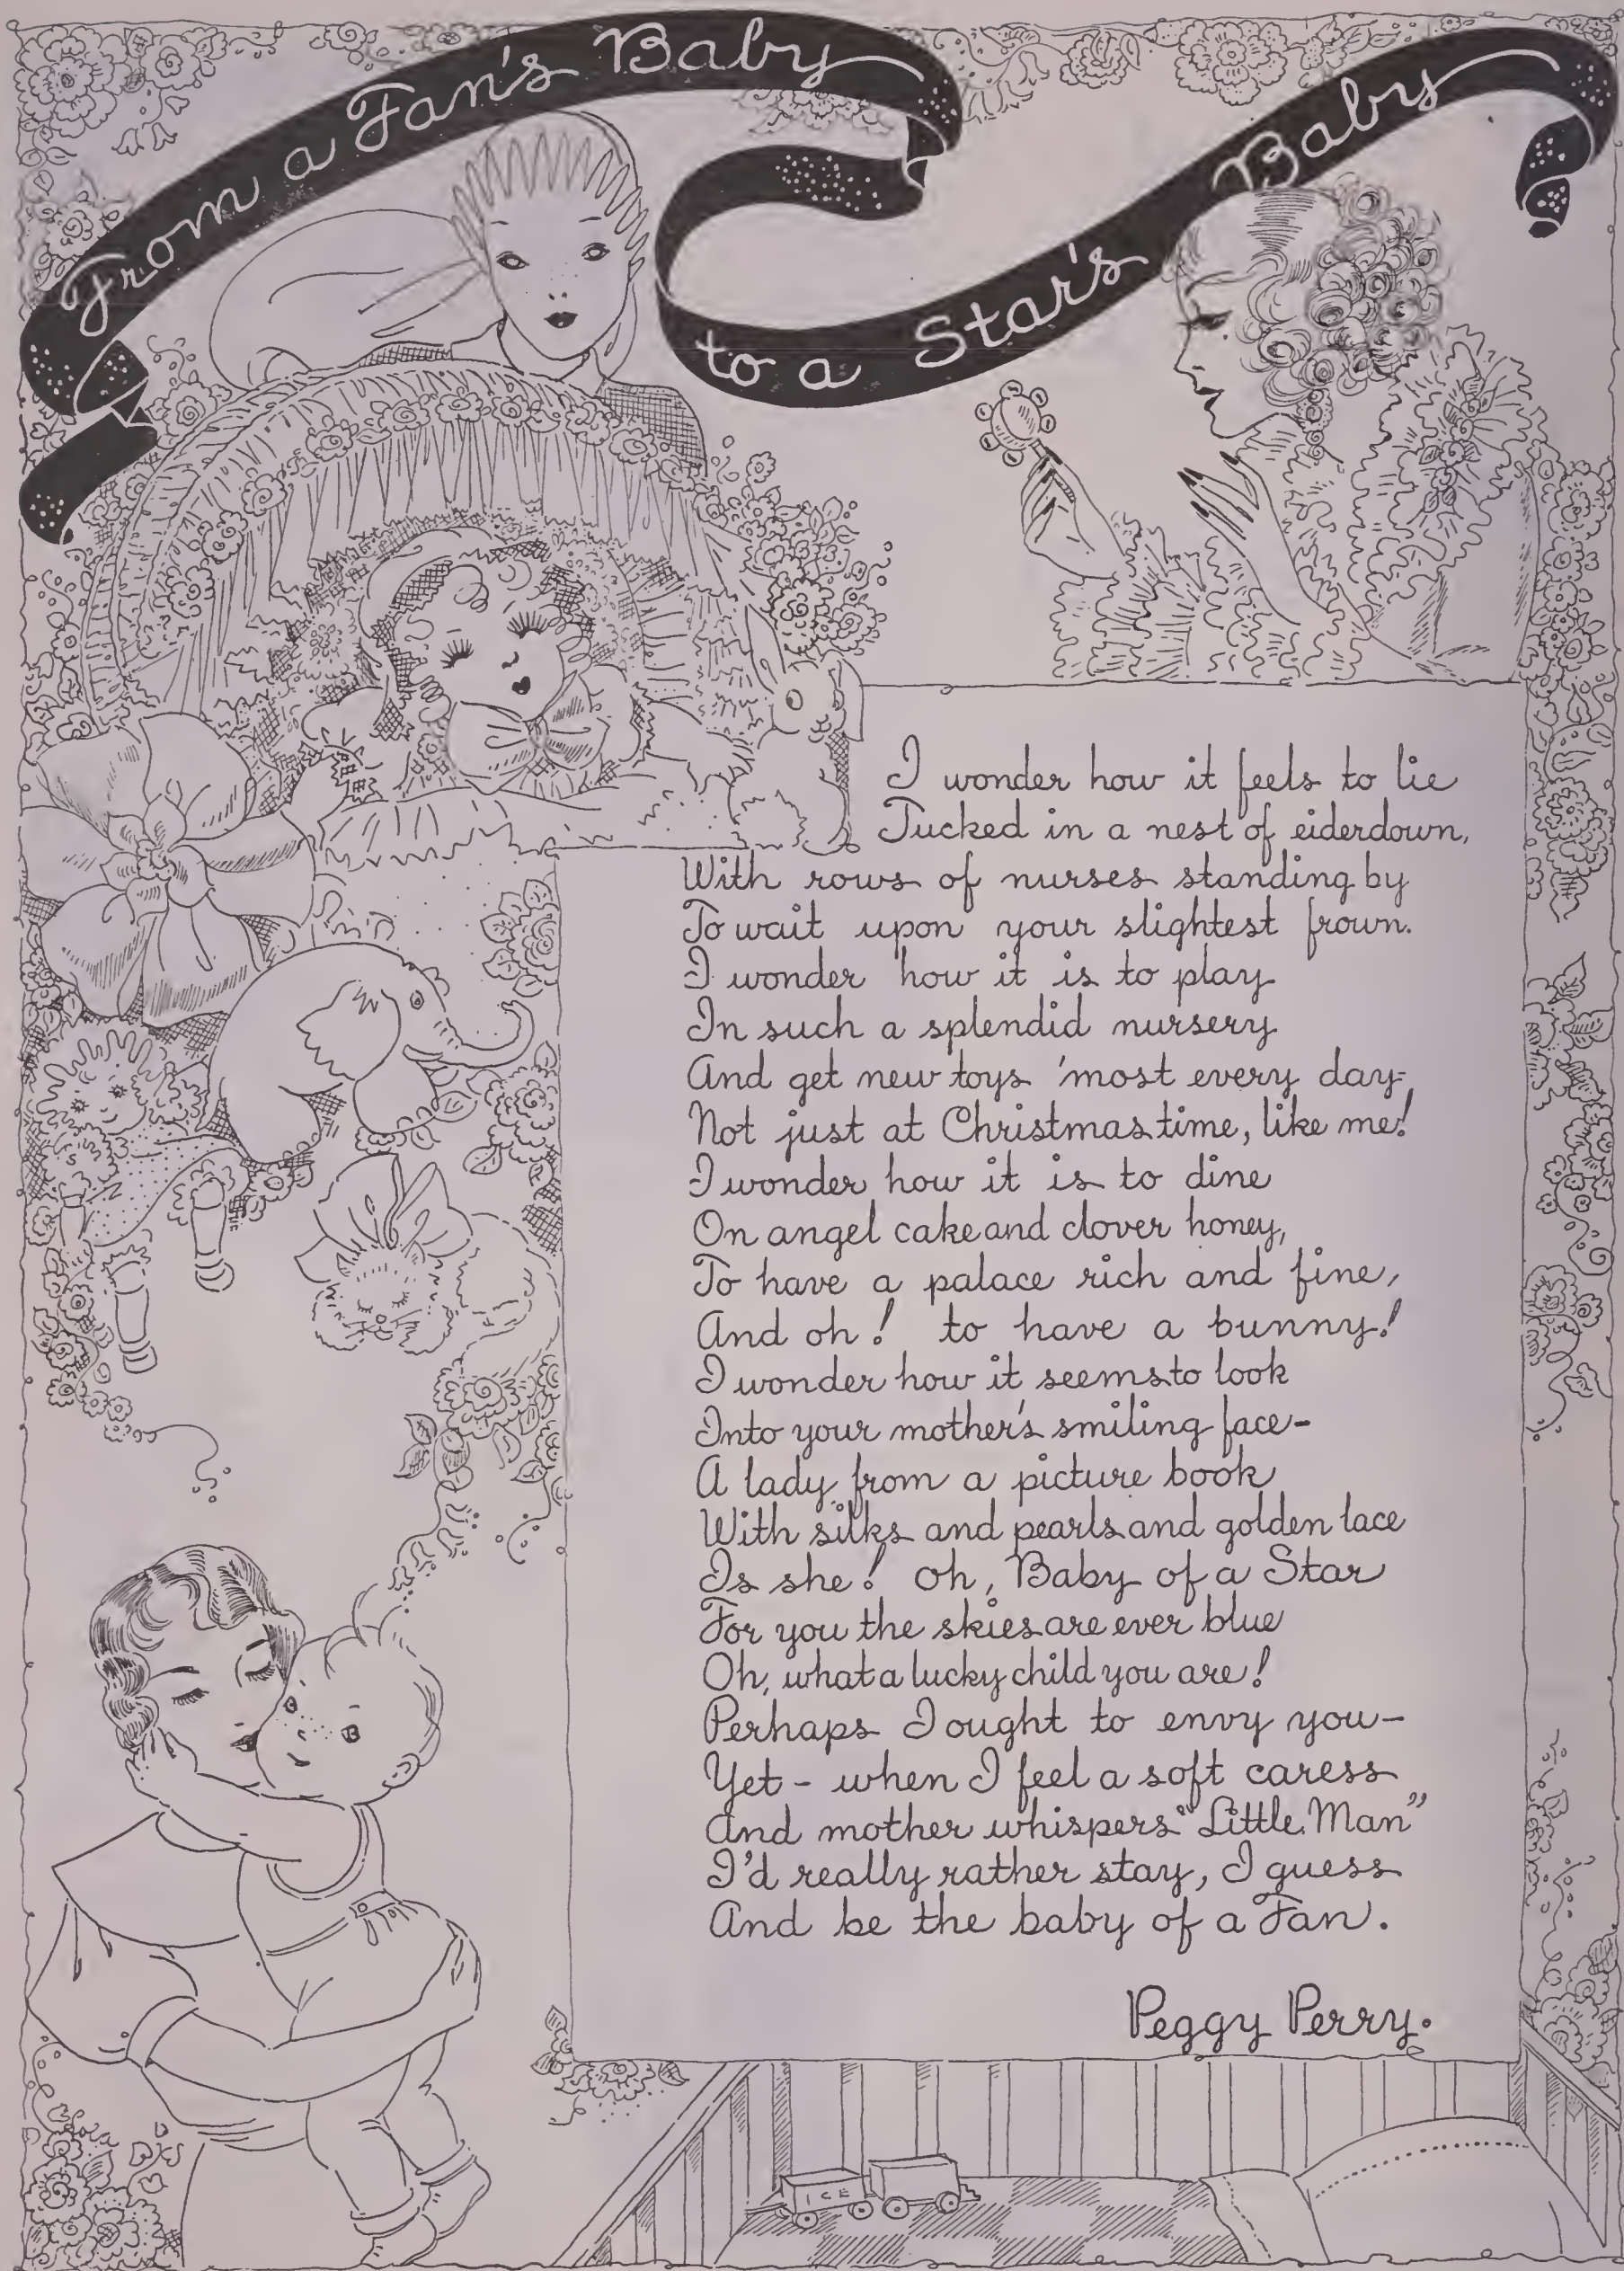 From a Fan's Baby
to a Star's Baby
I wonder how it feels to lie
Tucked in a nest of eiderdown,
With rows of nurses standing by
To wait upon your slightest frown.
I wonder how it is to play
In such a splendid nursery
And get new toys 'most every day-
Not just at Christmas time, like me!
I wonder how it is to dine
On angel cake and clover honey,
To have a palace rich and fine,
And oh! to have a bunny!
I wonder how it seems to look
Into your mother's smiling face-
A lady from a picture book
With silks and pearls and golden lace
Is she! Oh, Baby of a Star
For you the skies are ever blue
Oh, what a lucky child you are!
Perhaps I ought to envy you-
Yet - when I feel a soft caress
And mother whispers "Little Man"
I'd really rather stay, I guess
And be the baby of a Fan.
Peggy Perry.
ICE